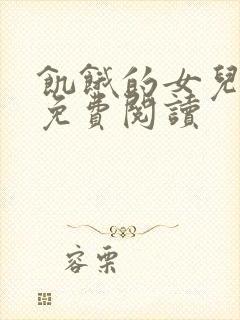 飢餓的女兒
免費閱讀
容栗